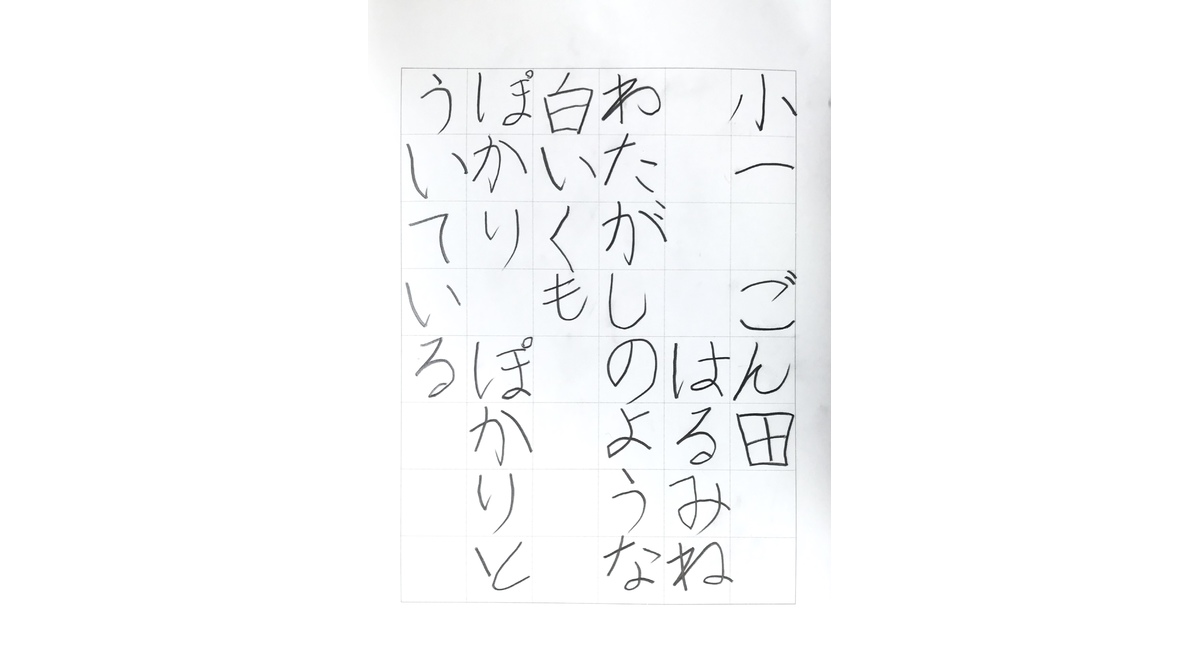 小一　ごん田
はるみね
わたがしのような
白いくも
ぽかり　ぽかりと
ういている